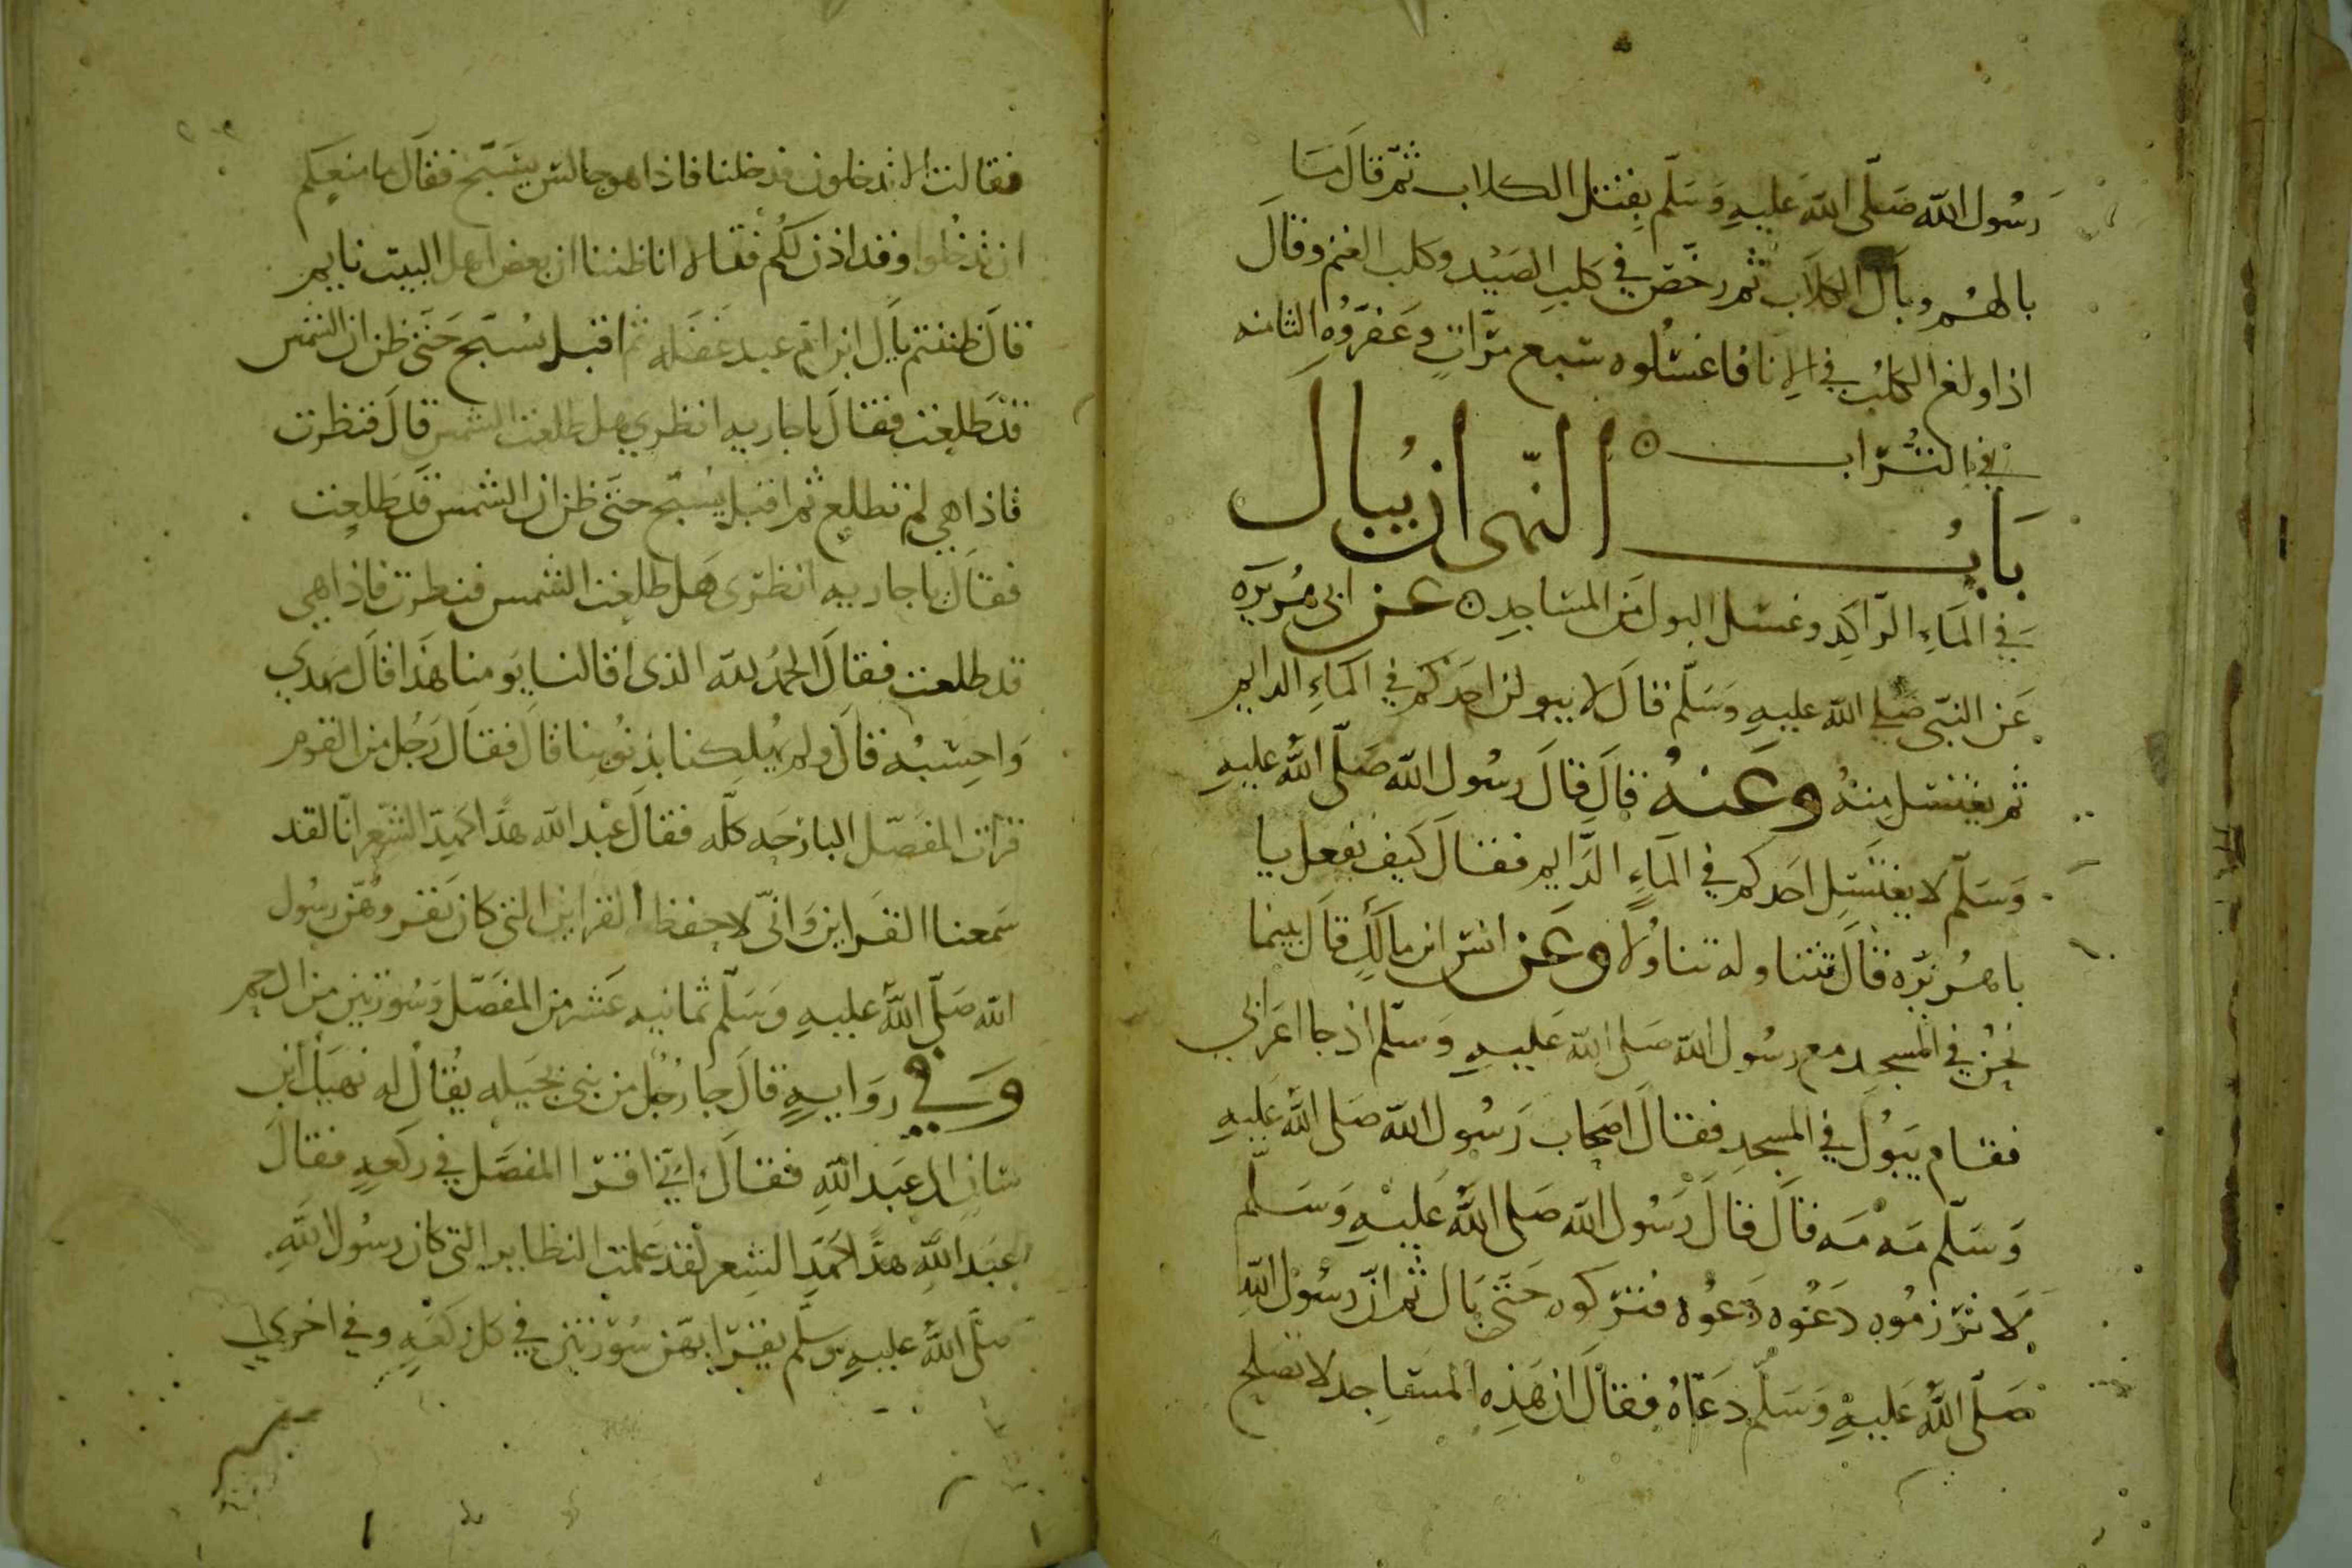 رسول الله صلى الله عليه وسلم بقتل الكلاب ثم قال ما
بالهم وبال الكلاب ثم رخص في كلب الصيد وكلب الغنم وقال
اذا ولغ الكلب في الانا فاغسلوه سبع مرات وعفروه الثامنه
في التراب
باب النهي ان يبال
في الماء الراكد وغسل البول من المساجد عن ابي هريره
عن النبي صلى الله عليه وسلم قال لا يبولن احدكم في الماء الدايم
ثم يغتسل منه وعنه قال قال رسول الله صلى الله عليه
وسلم لا يغتسل احدكم في الماء الدايم فقال كيف يفعل يا
با هريره قال يتناوله تناولا وعن انس ابن مالك قال بينما
نحن في المسجد مع رسول الله صلى الله عليه وسلم اذ جا اعرابي
فقام يبول في المسجد فقال اصحاب رسول الله صلى الله عليه
وسلم مه مه قال قال رسول الله صلى الله عليه وسلم
لا تزرموه دعوه دعوه فتركوه حتى بال ثم ان رسول الله
صلى الله عليه وسلم دعاه فقال ان هذه المساجد لا تصلح
فقالت الا تدخلون فدخلنا فاذا هو جالس يسبح فقال ما منعكم
ان تدخلوا وقد اذن لكم فقال لا انا ظننا ان بعض اهل البيت نايم
قال ظننتم بال ابن ام عبد غفله ثم اقبل يسبح حتى ظن ان الشمس
قد طلعت فقال يا جاريه انظري هل طلعت الشمس قال فنظرت
فاذا هي لم تطلع ثم اقبل يسبح حتى ظن ان الشمس قد طلعت
فقال يا جاريه انظري هل طلعت الشمس فنظرت فاذا هي
قد طلعت فقال الحمد لله الذي اقالنا يومنا هذا قال مهدي
واحسبه قال ولم يهلكنا بذنوبنا قال فقال رجل من القوم
قرات المفصل البارحه كله فقال عبد الله هذا كهذ الشعر انا لقد
سمعنا القراين واني لاحفظ القراين التي كان يقروهن رسول
الله صلى الله عليه وسلم ثمانيه عشر من المفصل وسورتين من ال حم
وفي روايه قال جا رجل من بني بجيله يقال له نهيك ابن
سنان الى عبد الله فقال اني اقرا المفصل في ركعه فقال
عبد الله هذا كهذ الشعر لقد علمت النظاير التي كان رسول الله
صلى الله عليه وسلم يقرا بهن سورتين في كل ركعه وفي اخري